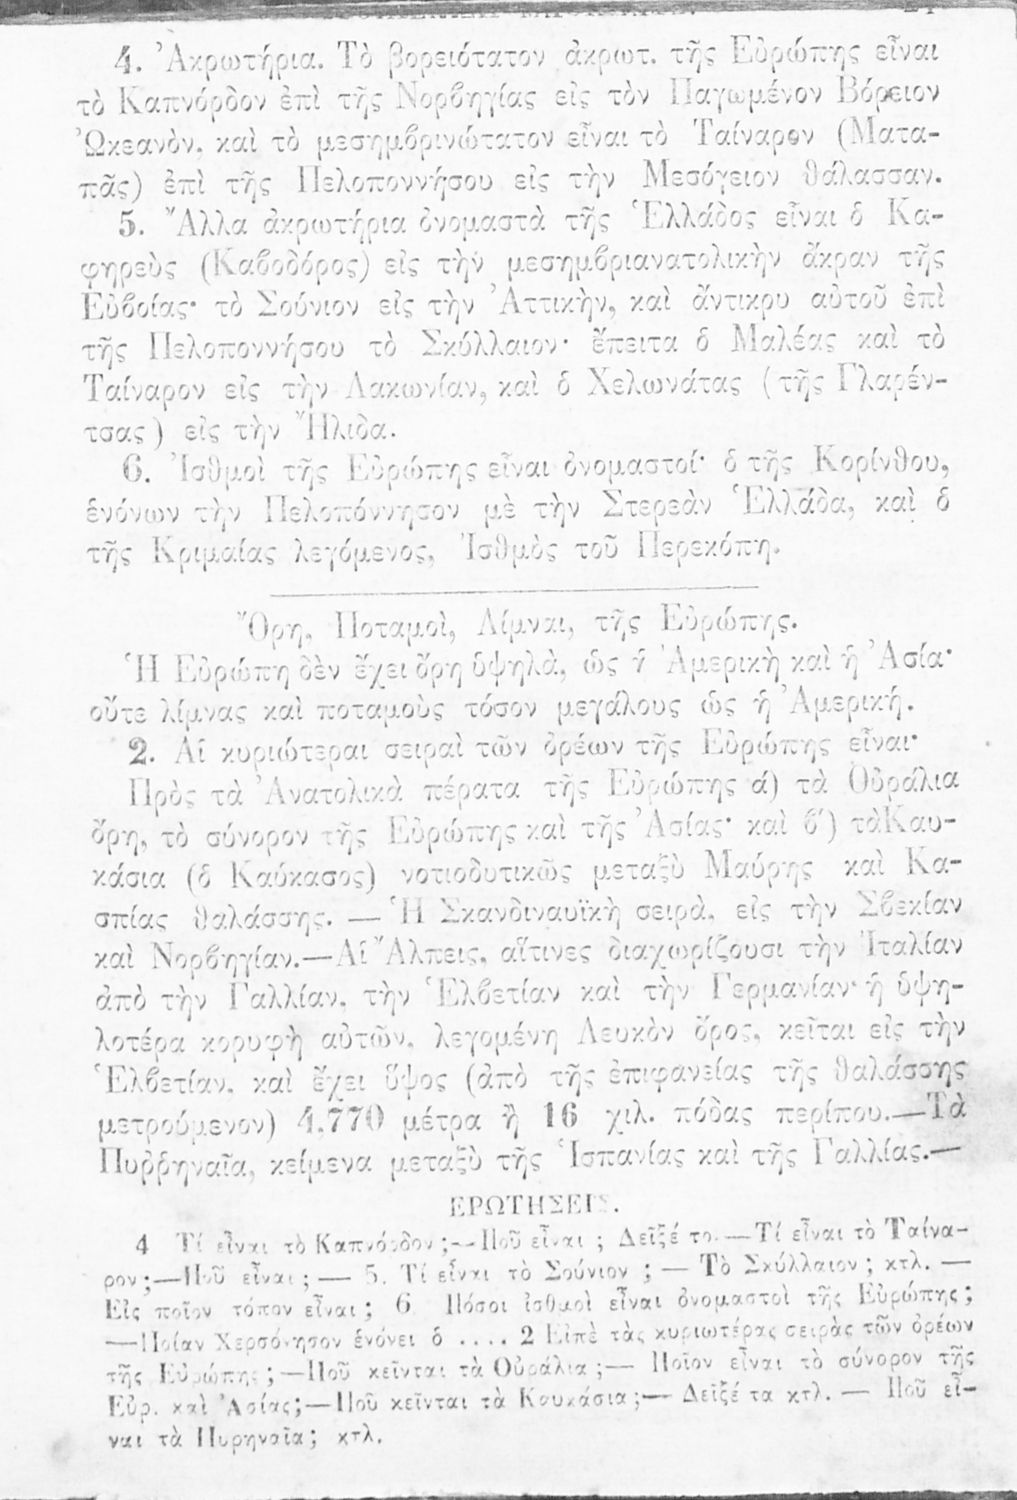 4. Ἀκρωτήρια. Τὸ βορειότατον ἀκρωτ. τῆς Εὐρώπης εἶναι
τὸ Καπνόρδον ἐπὶ τῆς Νορβηγίας εἰς τὸν Παγωμένον Βόρειον
Ὠκεανὸν, καὶ τὸ μεσημβρινώτατον εἶναι τὸ Ταίναρον (Ματα-
πᾶς) ἐπὶ τῆς Πελοποννήσου εἰς τὴν Μεσόγειον θάλασσαν.
5. Ἄλλα ἀκρωτήρια ὀνομαστὰ τῆς Ἑλλάδος εἶναι ὁ Κα-
φηρεὺς (Καβοδόρος) εἰς τὴν μεσημβριανατολικὴν ἄκραν τῆς
Εὐβοίας· τὸ Σούνιον εἰς τὴν Ἀττικὴν, καὶ ἄντικρυ αὐτοῦ ἐπὶ
τῆς Πελοποννήσου τὸ Σκύλλαιον· ἔπειτα ὁ Μαλέας καὶ τὸ
Ταίναρον εἰς τὴν Λακωνίαν, καὶ ὁ Χελωνάτας (τῆς Γλαρέν-
τσας) εἰς τὴν Ἤλιδα.
6. Ἰσθμοὶ τῆς Εὐρώπης εἶναι ὀνομαστοί· ὁ τῆς Κορίνθου,
ἑνόνων τὴν Πελοπόννησον μὲ τὴν Στερεὰν Ἑλλάδα, καὶ ὁ
τῆς Κριμαίας λεγόμενος, Ἰσθμὸς τοῦ Περεκόπη.
Ὄρη, Ποταμοὶ, Λίμναι, τῆς Εὐρώπης.
Ἡ Εὐρώπη δὲν ἔχει ὄρη ὑψηλὰ, ὡς ἡ Ἀμερικὴ καὶ ἡ Ἀσία·
οὔτε λίμνας καὶ ποταμοὺς τόσον μεγάλους ὡς ἡ Ἀμερική.
2. Αἱ κυριώτεραι σειραὶ τῶν ὀρέων τῆς Εὐρώπης εἶναι·
Πρὸς τὰ Ἀνατολικὰ πέρατα τῆς Εὐρώπης ά) τὰ Οὐράλια
ὄρη, τὸ σύνορον τῆς Εὐρώπης καὶ τῆς Ἀσίας· καὶ β΄) τὰ Καυ-
κάσια (ὁ Καύκασος) νοτιοδυτικῶς μεταξὺ Μαύρης καὶ Κα-
σπίας θαλάσσης. — Ἡ Σκανδιναυϊκὴ σειρὰ, εἰς τὴν Σβεκίαν
καὶ Νορβηγίαν.—Αἱ Ἄλπεις, αἵτινες διαχωρίζουσι τὴν Ἰταλίαν
ἀπὸ τὴν Γαλλίαν, τὴν Ἑλβετίαν καὶ τὴν Γερμανίαν· ἡ ὑψη-
λοτέρα κορυφὴ αὐτῶν, λεγομένη Λευκὸν ὄρος, κεῖται εἰς τὴν
Ἑλβετίαν, καὶ ἔχει ὕψος (ἀπὸ τῆς ἐπιφανείας τῆς θαλάσσης
μετρούμενον) 4,770 μέτρα ἢ 16 χιλ. πόδας περίπου.—Τὰ
Πυῤῥηναῖα, κείμενα μεταξὺ τῆς Ἱσπανίας καὶ τῆς Γαλλίας.—
ΕΡΩΤΗΣΕΙΣ.
4 Τί εἶναι τὸ Καπνόρδον;—Ποῦ εἶναι; Δεῖξέ το.—Τί εἶναι τὸ Ταίνα-
ρον;—Ποῦ εἶναι; — 5. Τί εἶναι τὸ Σούνιον; — Τὸ Σκύλλαιον; κτλ. —
Εἰς ποῖον τόπον εἶναι; 6 Πόσοι ἰσθμοὶ εἶναι ὀνομαστοὶ τῆς Εὐρώπης;
—Ποίαν Χερσόνησον ἑνόνει ὁ .... 2 Εἰπὲ τὰς κυριωτέρας σειρὰς τῶν ὀρέων
τῆς Εὐρώπης;—Ποῦ κεῖνται τὰ Οὐράλια;— Ποῖον εἶναι τὸ σύνορον τῆς
Εὐρ. καὶ Ἀσίας;—Ποῦ κεῖνται τὰ Καυκάσια;— Δεῖξέ τα κτλ. — Ποῦ εἶ-
ναι τὰ Πυρηναῖα; κτλ.